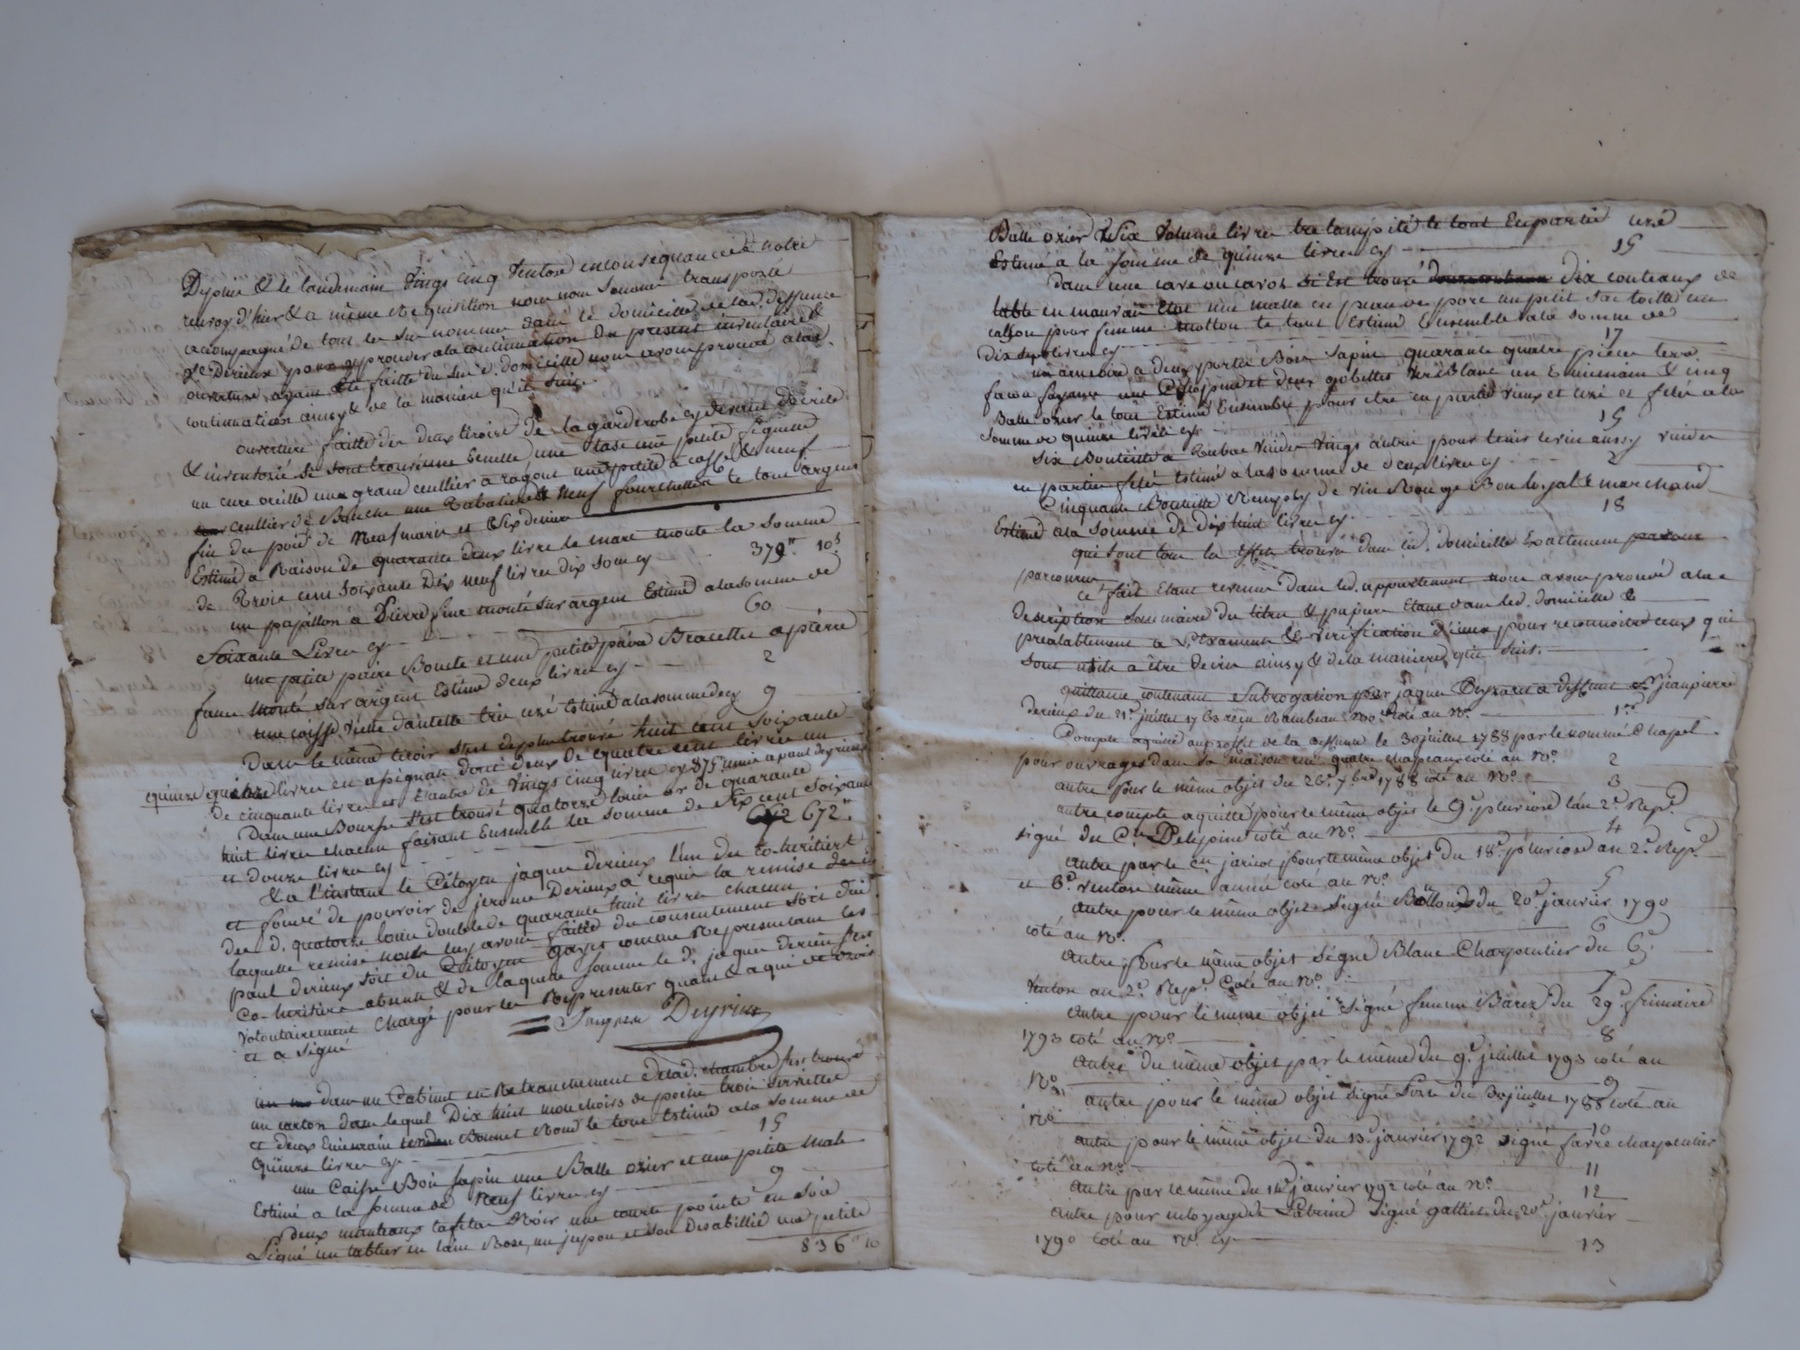 Depuis & le landemain Vingt cinq Ventose en consequance de notre
renvoy d'hier & a même Requisition nous nous sommes transporté
accompagné de tous les sus nommés dans le domicille de lad. deffunte
Ve Derieux pour y proceder a la continuation du present inventaire &
ouverture ayant été faitte du sus d. domicille nous avons procedé a lad.
continuation ainsy & de la maniere qu'il suit.
ouverture faitte des deux tiroirs de la garderobe cy devant décrite
& inventorié se sont trouvé une Ecuelle une tasse une petite
un cure oreille un grand cuellier a ragout une petite a caffé & neuf
cuellier de Bouche une Tabatiere & neuf fourchettes le tout argent
fin du poid de neuf marcs et six deniers
Estimé a Raison de quarante deux livres le marc monte la somme
de Trois cent soixante Dix neuf livres dix sous cy 379tt 10s
un papillon a Pierre fine monté sur argent Estimé a la somme de
Soixante Livres cy 60
une petite paire Boucle et une petite paire Bracellet a pierre
fausse monté sur argent Estimé deux livres cy 2
une coiffe vieille dantelle très uzé estimé a la somme de cy 9
Dans le même tiroir s'est de plus trouvé huit cent soixante
quinze livres en assignats dont deux de quatre cent livres un
de cinquante livres et l'autre de vingt cinq livres cy 875
Dans une Bourse s'est trouvé quatorze louis or de quarante
huit livres chacun faisant Ensemble la somme de six cent soixante
et douze livres cy 672tt
Et a l'instant le Citoyen jaques derieux l'un des co-heritiers
et fondé de pouvoir de jerome Derieux a requis la remise
des d. quatorze louis double de quarante huit livres chacun
laquelle remise nous luy avons faitte du consentement soit dud.
paul derieux soit du Citoyen comme Representant les
Co-heritiers absents & de laquelle somme le d. jaques derieux s'est
volontairement chargé pour les Representer quand & a qui de droit
et a signé
Jaques Deyrieux
dans un Cabinet en Retranchement de lad. chambre s'est trouvé
un carton dans lequel Dix huit mouchoirs de poche trois serviettes
et deux Bonnet Rond le tout Estimé a la somme de
Quinze livres cy 15
une Caisse Bois sapin une Balle ozier et une petite male
Estimé a la somme de neuf livres cy 9
Deux manteaux taffetas Noir une courte pointe en soie
un tablier en laine Rose, un jupon et son Desabillié une petite
836tt 10
Balle ozier & six Volume livres le tout En partie uzé
Estimé a la somme de quinze livres cy 15
Dans une cave ou caveau s'est trouvé dix couteaux de
table en mauvais Etat une malle en peau de porc un petit sac toille un
calson pour femme molton le tout Estimé Ensemble a la somme de
Dix sept livres cy 17
un armoire a deux portes Bois sapin quarante quatre pieces terre
facon fayance une et deux gobellet verre Blanc un & cinq
Balle ozier le tout Estimé Ensemble pour etre en partie vieux et uzé et felé a la
somme de quinze livres cy 15
six Bouteille a Tabac vuides vingt autre pour tenir le vin aussy vuides
en partie felé Estimé a la somme de deux livres cy 2
Cinquante Bouteille Remply de vin Rouge Bon loyal & marchand
Estimé a la somme de Dix huit livres cy 18
qui sont tous les Effets trouvés dans led. domicille Exactement
parcouru
ce fait Etant revenu dans led. appartement nous avons procedé a la
description sommaire des titres & papiers Etant dans led. domicille &
prealablement a l'Examen & verification d'iceux pour reconnoitre ceux qui
sont utile a être décrit ainsy & de la maniere qu'il suit.
quittance contenant subrogation par jaques a deffunt Sr jean pierre
derieux du 21e juillet 1763 reçu Rambeau nore coté au No 1er
Compte aquitté au profit de la deffunte le 30 juillet 1788 par le nommé Chapel
pour ouvrages dans sa maison coté au No 2
autre pour le même objet du 26e 7bre 1788 coté au No 3
autre compte aquitté pour le même objet le 9e pluviose l'an 2e Repe
signé du Cn Delojoine coté au No 4
autre par le Cn jaricot pour le même objet du 18e pluviose an 2e Repe
et 6e ventose même année coté au No 5
autre pour le même objet signé du 20e janvier 1790
coté au No 6
autre pour le même objet signé Blanc Charpentier du 6e
Ventose an 2e Repe Coté au No 7
autre pour le même objet signé femme Barez du 29e frimaire
1793 coté au No 8
autre du même objet par le même du 9e juillet 1793 coté au
No 9
autre pour le même objet signé du 30 juillet 1788 coté au
No 10
autre pour le même objet du 13e janvier 1792 signé favre charpentier
coté au No 11
autre par le même du 14e janvier 1792 coté au No 12
autre pour netoyage de Latrine signé du 20e janvier
1790 coté au No cy 13